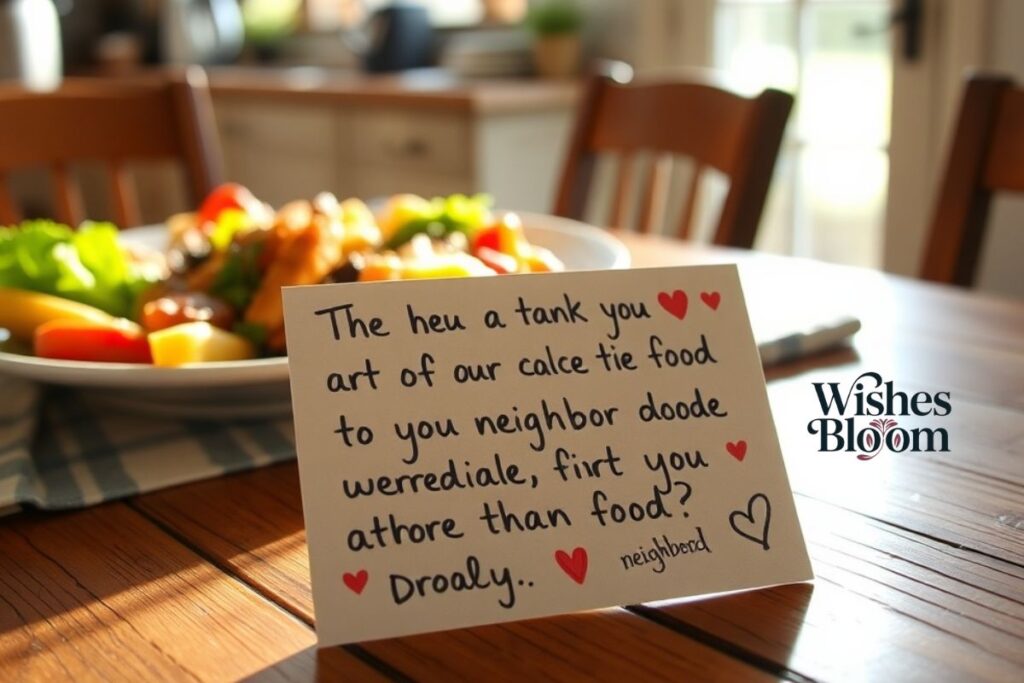 The heu a tank you
art of our calce tie food
to you neighbor doode
werrediale, firt you
athore than food?
Droaly..
neighbord
Wishes
Bloom